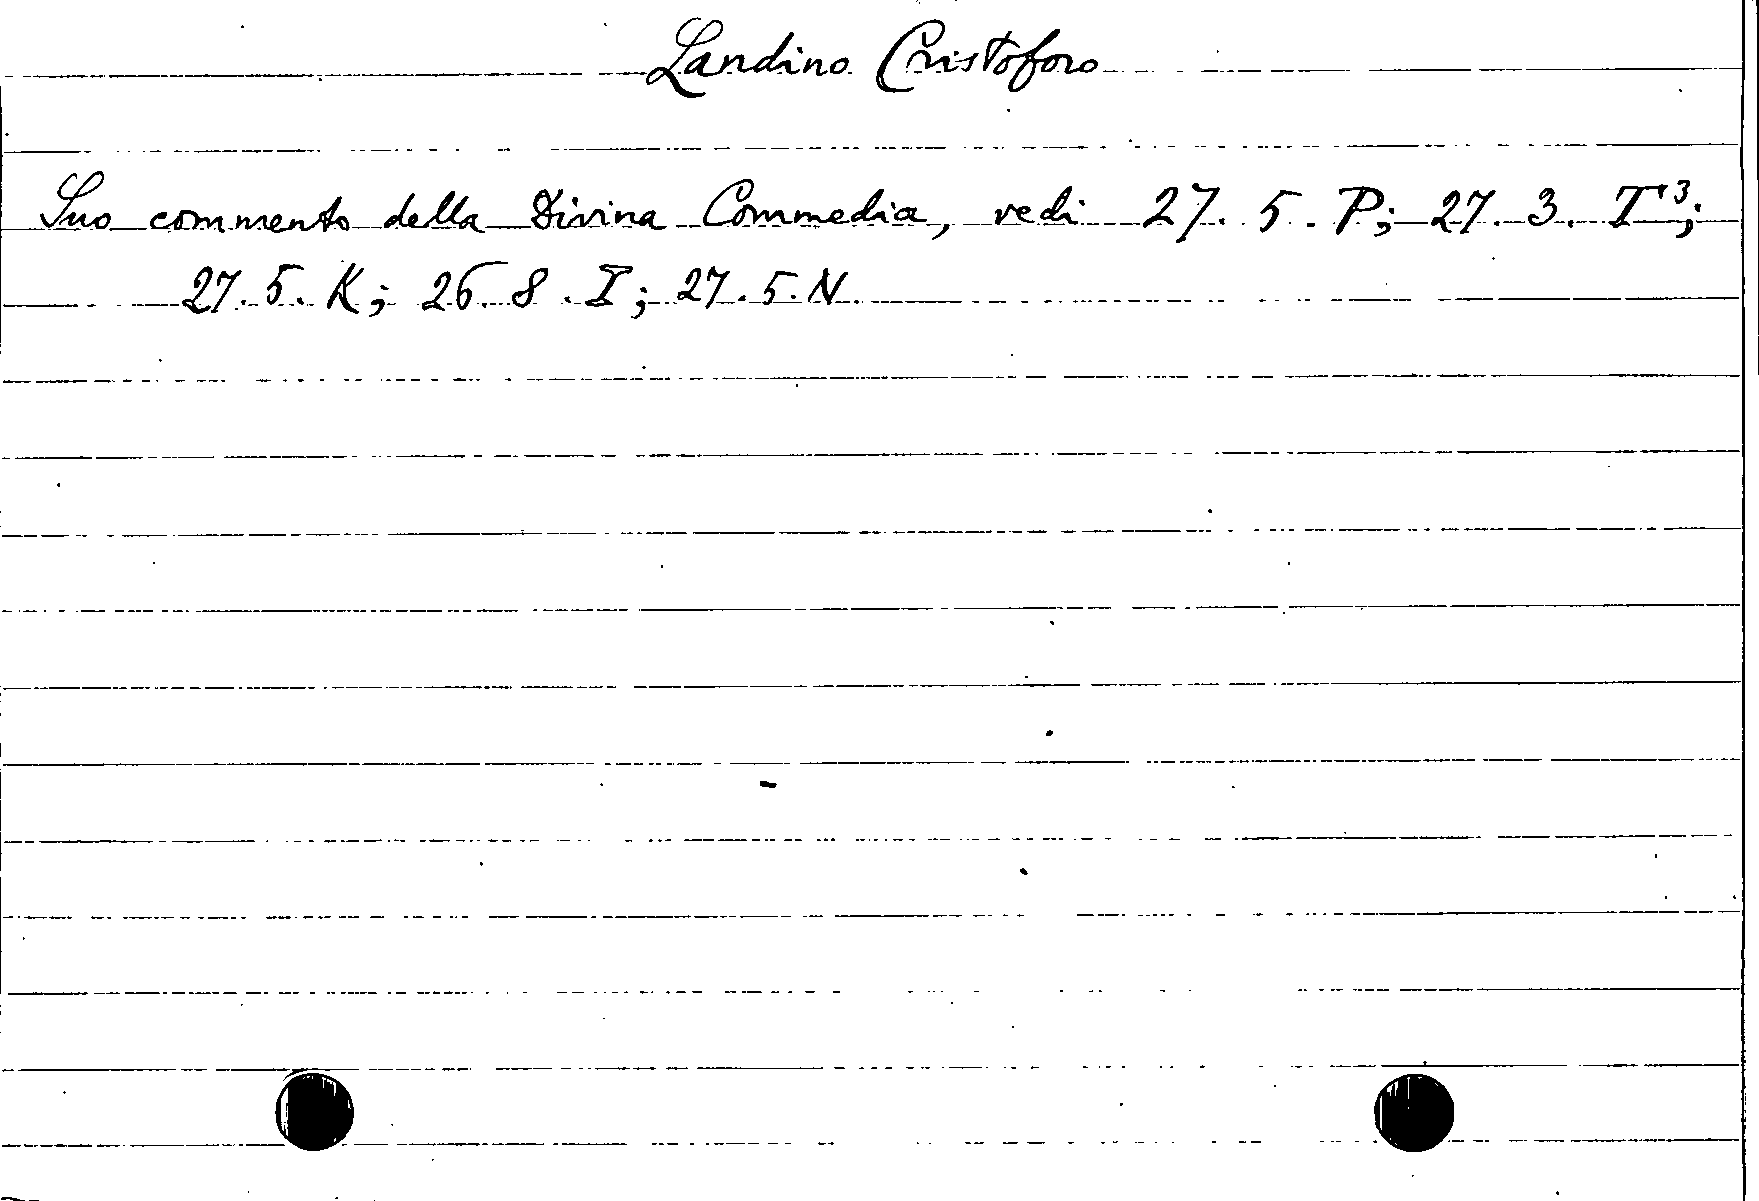 Landino Cristoforo
Suo commento della Divina Commedia, vedi 27. 5. P; 27. 3. T³;
27. 5. K; 26. 8. I; 27. 5. N.